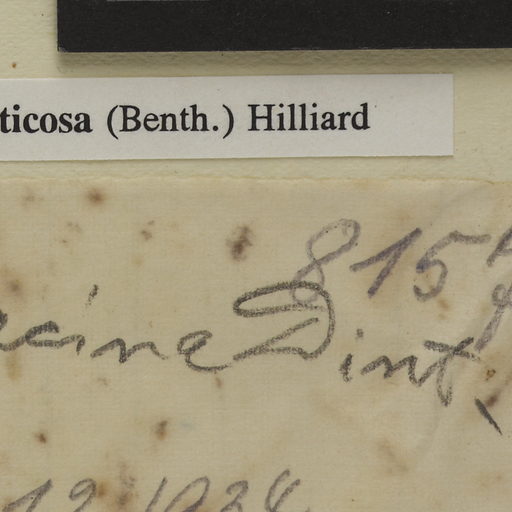 ticosa (Benth.) Hilliard
815
acina Dint.
12.1934